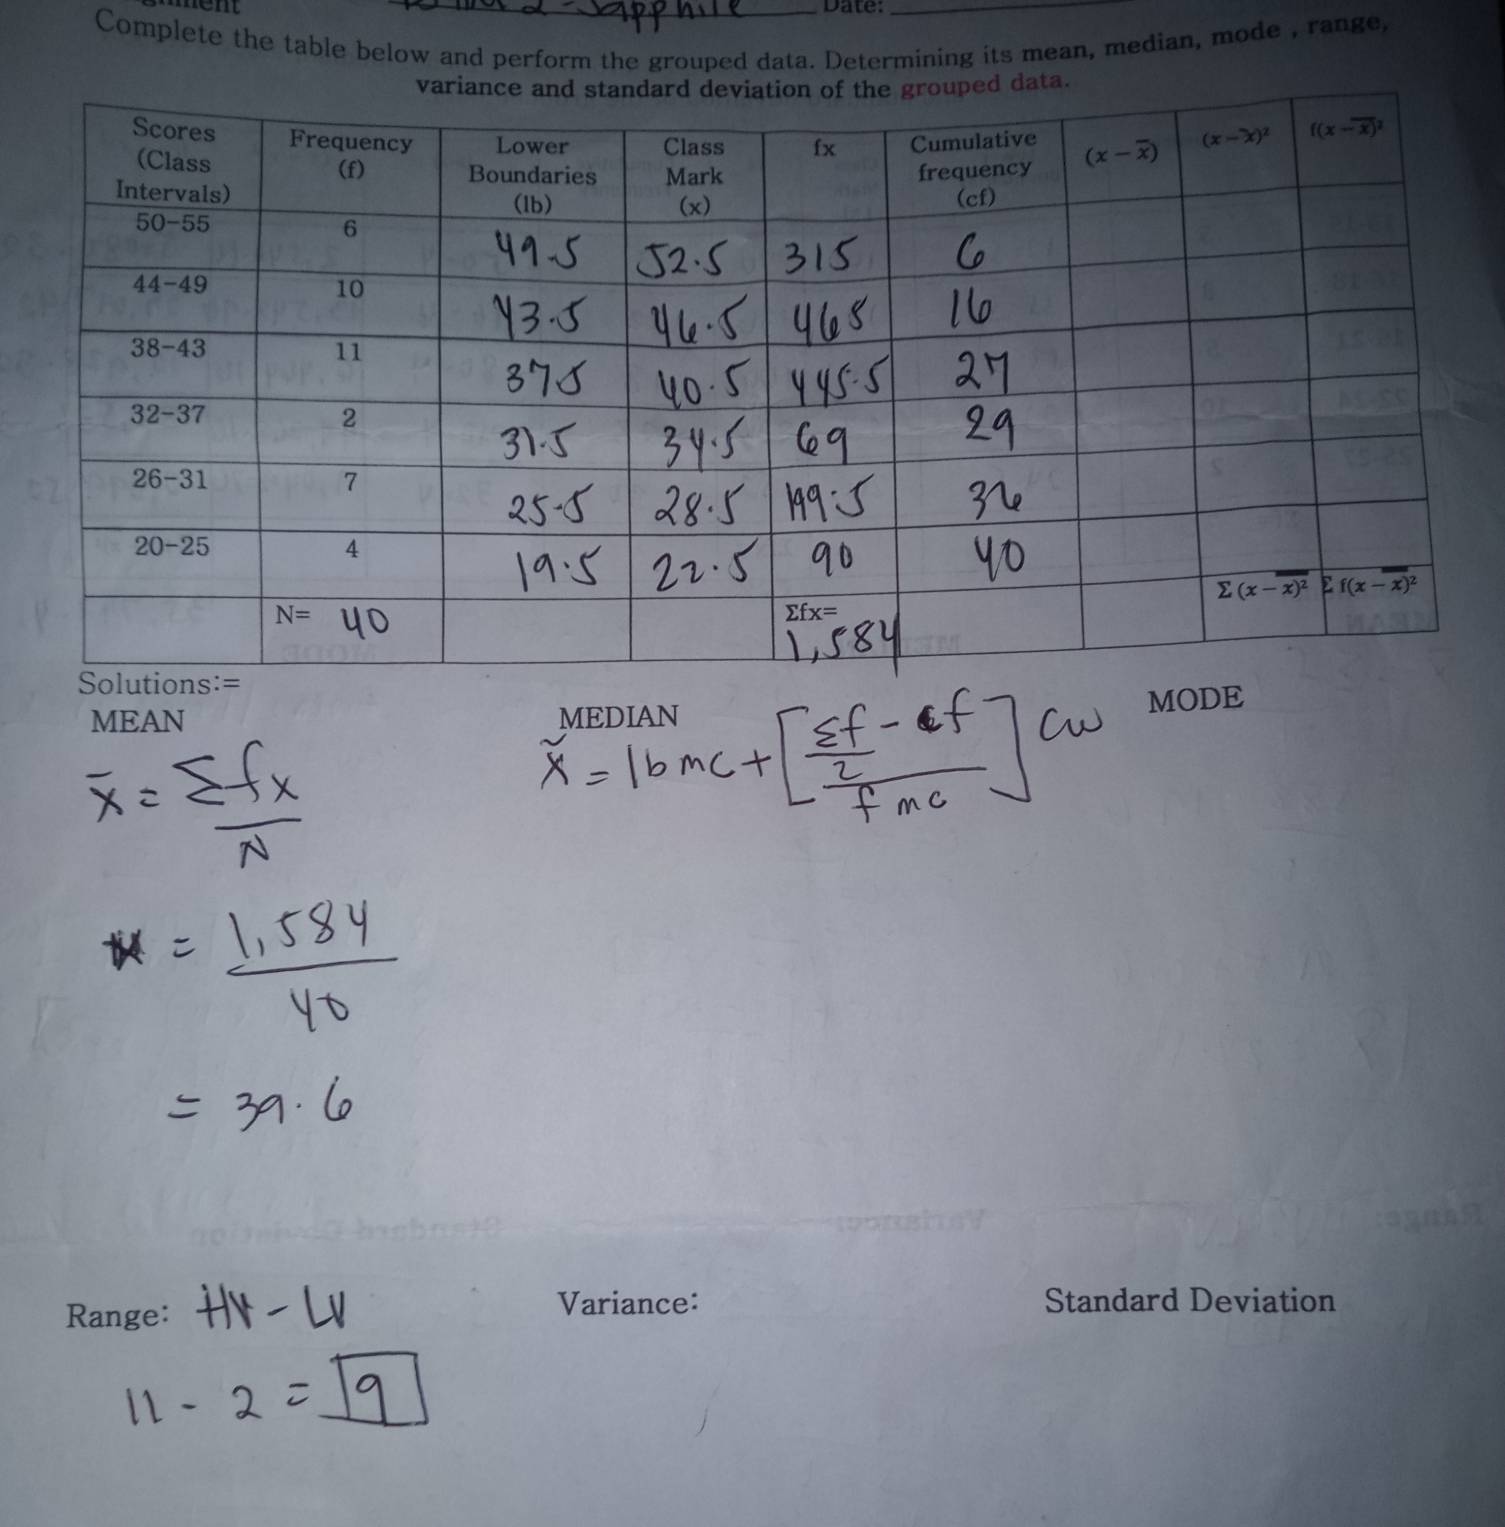 Sapphire Date:
Complete the table below and perform the grouped data. Determining its mean, median, mode , range,
variance and standard deviation of the grouped data.
Scores (Class Intervals) Frequency (f) Lower Boundaries (lb) Class Mark (x) fx Cumulative frequency (cf) (x − x̅) (x − x̅)² f(x − x̅)²
50-55 6 49.5 52.5 315 6
44-49 10 43.5 46.5 465 16
38-43 11 37.5 40.5 445.5 27
32-37 2 31.5 34.5 69 29
26-31 7 25.5 28.5 199.5 36
20-25 4 19.5 22.5 90 40
N= 40 Σfx= 1,584 Σ (x − x̅)² Σ f(x − x̅)²
Solutions:=
MEAN MEDIAN MODE
x̅ = Σfx / N
x̃ = lbmc + [Σf/2 - cf / fmc] cw
= 1,584 / 40
= 39.6
Range: HV - LV Variance: Standard Deviation
11 - 2 = 9